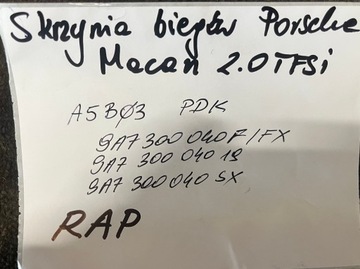 Skrzynia biegów Porsche
Macan 2.0TFSi
A5BØ3 PDK
9A7 300 040 F/FX
9A7 300 040 18
9A7 300 040 SX
RAP